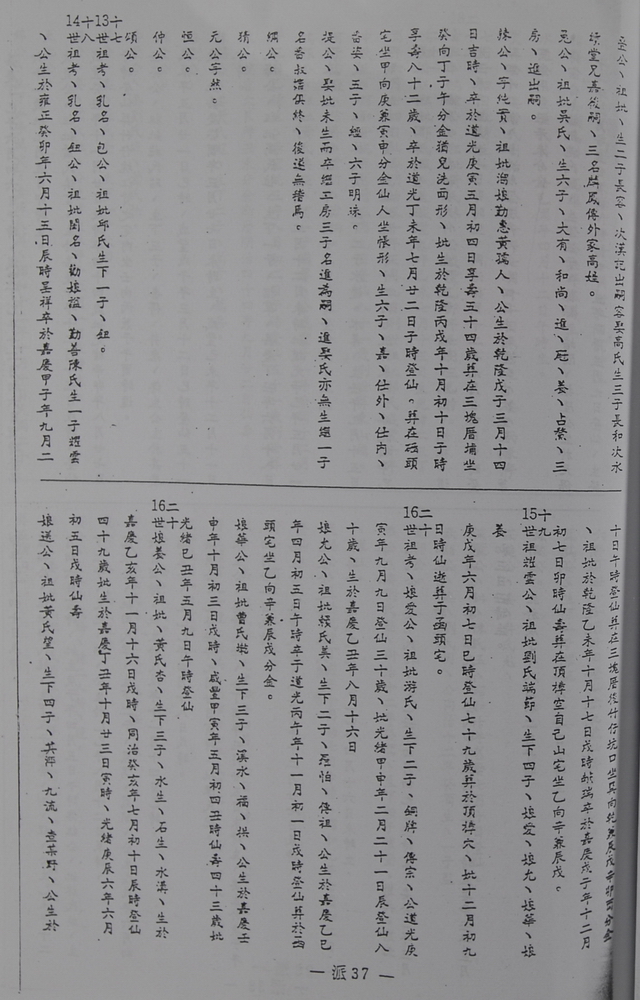 垒公、祖妣、生二子長客、次漢記出嗣客娶高氏生三子長和次水
堂兄嘉後嗣、三名麟鳳傳外家高姓。
兎公、祖妣吳氏、生六子、大有、和尚、進、旺、養、占縈、三
房、進出嗣。
操公、字純貫、祖妣溜娘勤惠黃孺人、公生於乾隆戊子三月十四
日吉時、卒於道光庚寅三月初四日享壽五十四歲葬在三塊厝埔坐
癸向丁子午分金猶兒洗面形、妣生於乾隆丙戌年十月初十日子時
享壽八十二歲、卒於道光丁未年七月廿二日子時登仙。葬在硘頭
宅坐甲向庚兼寅申分金仙人坐帳形、生六子、嘉、仕外、仕內、
番婆、三子、經、六子明珠。
湜公、娶妣未生而卒繼工房三子名進為嗣、進娶氏亦無生繼一子
名番叔治俱終、後遂無稽焉。
網公。
猜公。
元公孑然。
恒公。
仲公。
頌公。
13十七世祖考、乳名、包公、祖妣邱氏生下一子、鈕。
14十八世祖考、乳名、鈕公、祖妣閏名、勸娘謚、勤善陳氏生一子躍雲
、公生於雍正癸卯年六月十三日辰時呈祥卒於嘉慶甲子年九月二
十日午時登仙葬在三塊厝後竹仔坑口坐巽向乾兼辰戌
、祖妣於乾隆乙未年十月十七日戌時誕瑞卒於嘉慶戊子年十二月
初七日卯時仙壽葬在頂樟空自己山宅坐乙向辛兼辰戌。
15十九世祖躍雲公、祖妣劉氏端節、生下四子、埌愛、埌允、埌華、埌
養
庚戌年六月初七日巳時登仙七十九歲葬於頂樟穴、妣十二月初九
日時仙遊葬于西頭宅。
16二十世祖考、埌愛公、祖妣游氏、生下二子、銅牌、傳宗、公道光庚
寅年九月九日登仙三十歲、妣光緒甲申年二月二十一日辰登仙八
十歲、生於嘉慶乙丑年八月十六日
埌允公、祖妣賴氏美、生下二子、孱怡、傳祖、公生於嘉慶乙巳
年四月初五日午時卒于道光丙午年十一月初一日戌時登仙葬於西
頭宅坐乙向辛兼辰戌分金。
埌華公、祖妣曹氏墘、生下三子、溪水、福、拱、公生於嘉慶壬
申年十月初三日戌時、咸豐甲寅年五月初四丑時仙壽四十三歲妣
光緒巳丑年五月九日午時登仙
16二十世埌養公、祖妣、黃氏杏、生下三子、水生、石生、水溪、生於
嘉慶乙亥年十一月十六日戌時、同治癸亥年七月初十日辰時登仙
四十九歲妣生於嘉慶丁丑年十月廿三日寅時、光緒庚辰六年六月
初五日戌時仙壽
埌送公、祖妣黃氏望、生下四子、其萍、九流、查某野、公生於
— 派37 —